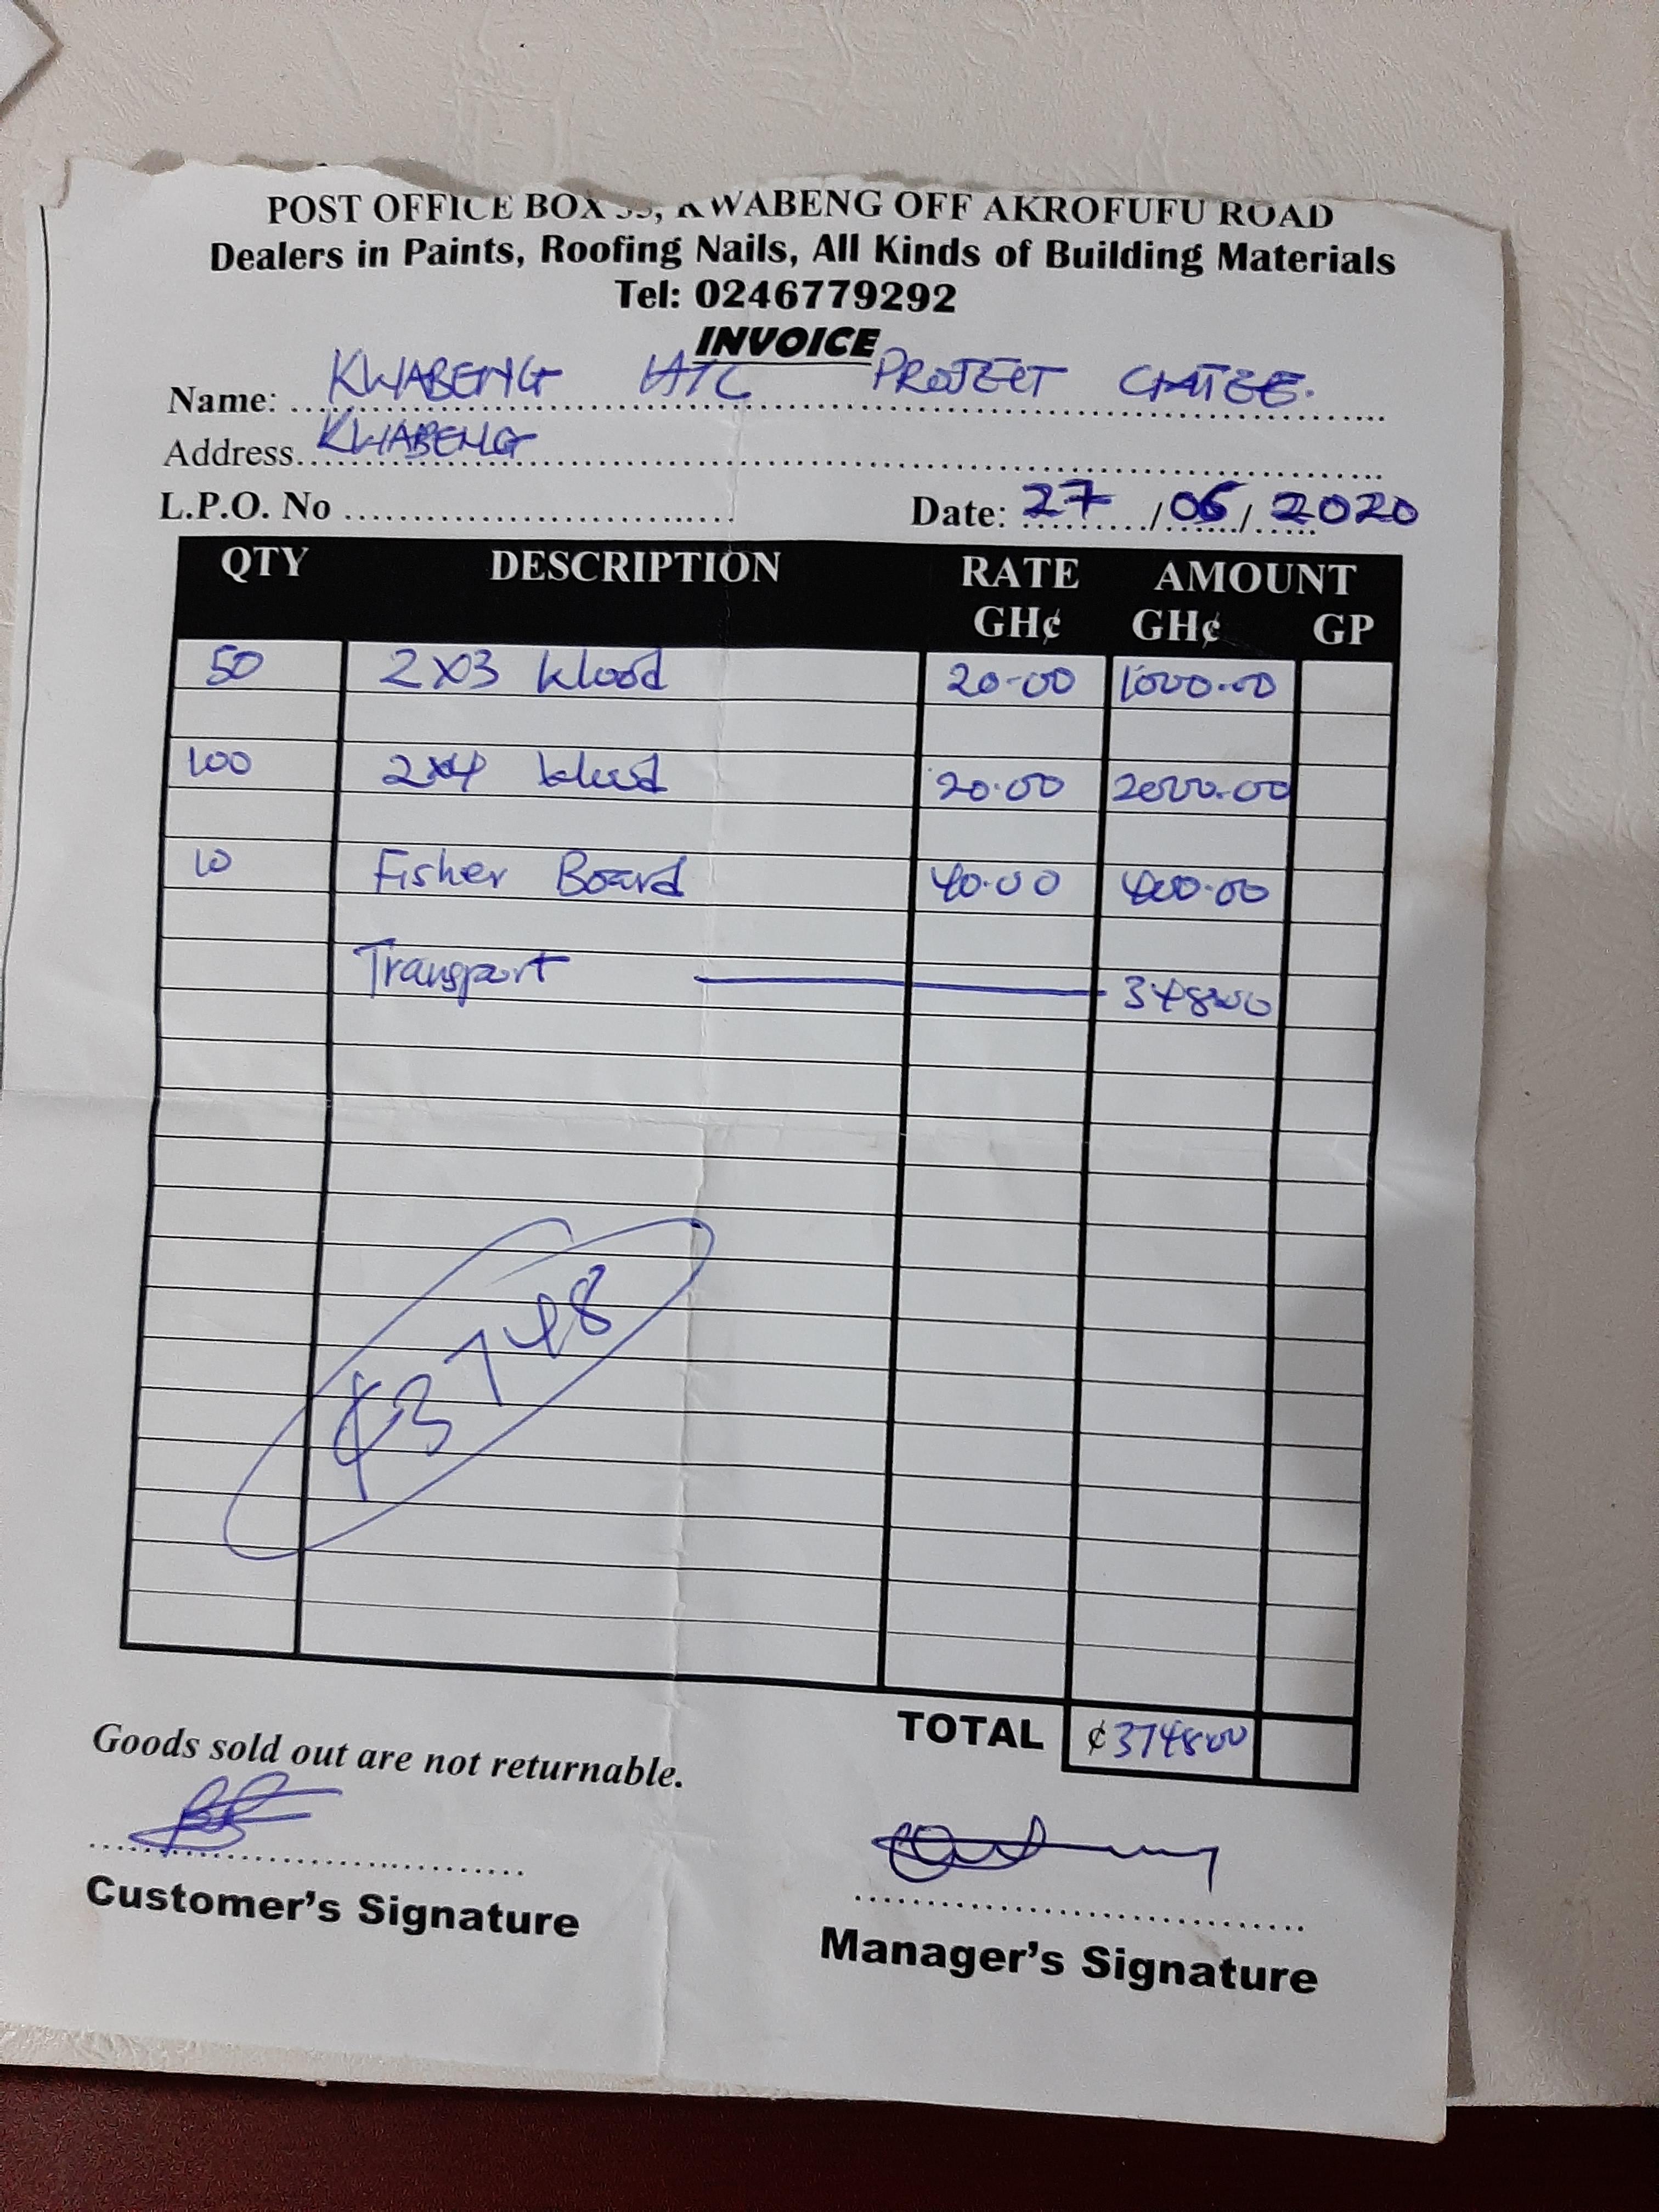 POST OFFICE BOX KWABENG OFF AKROFUFU ROAD
Dealers in Paints, Roofing Nails, All Kinds of Building Materials
Tel: 0246779292
INVOICE
Name: KWABENG PROJECT C'MTEE.
Address KWABENG
L.P.O. No Date: 27/06/2020
QTY DESCRIPTION RATE GH¢ AMOUNT GH¢ GP
50 2x3 Wood 20.00 1000.00
100 2x4 Wood 20.00 2000.00
10 Fisher Board 40.00 400.00
Transport 348.00
¢3748
TOTAL ¢3748.00
Goods sold out are not returnable.
Customer's Signature
Manager's Signature